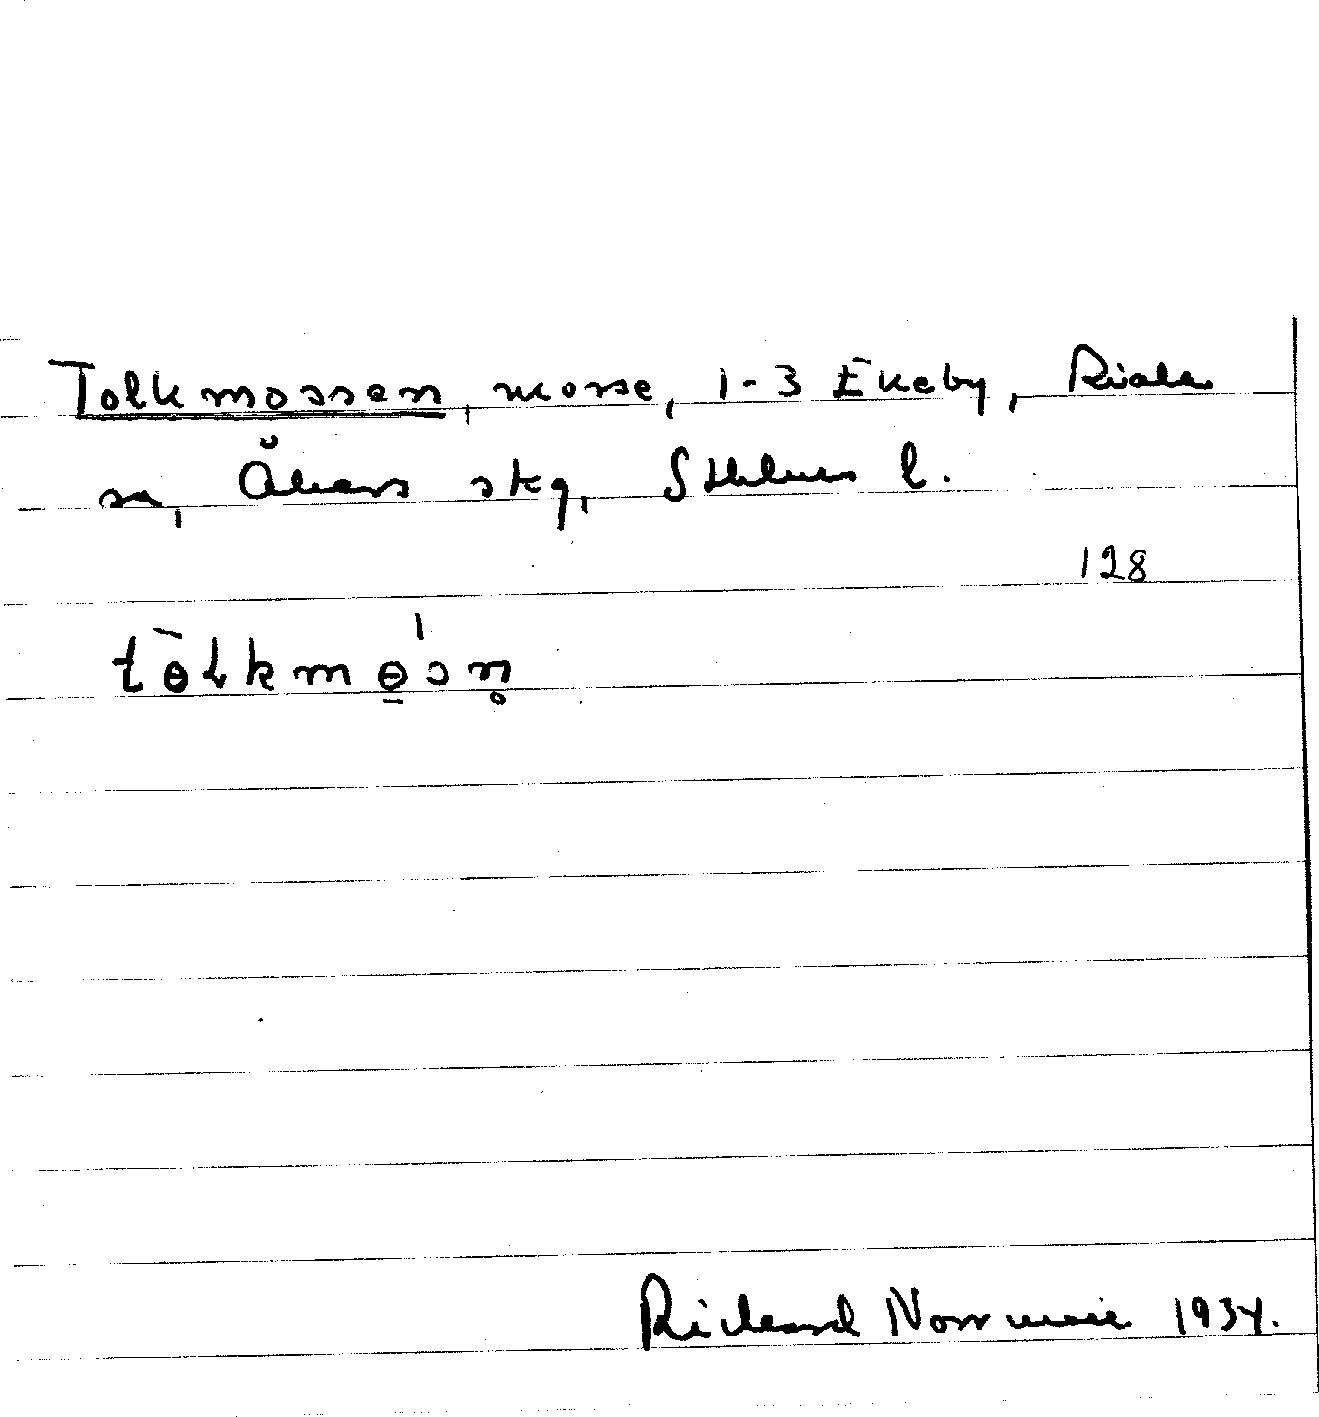 Tolkmossen, mosse, 1-3 Ekeby, Riala
sn, Åkers skg, Sthlms l.
128
tɵ̀lkmɵ̠sn̥
Richard 1934.